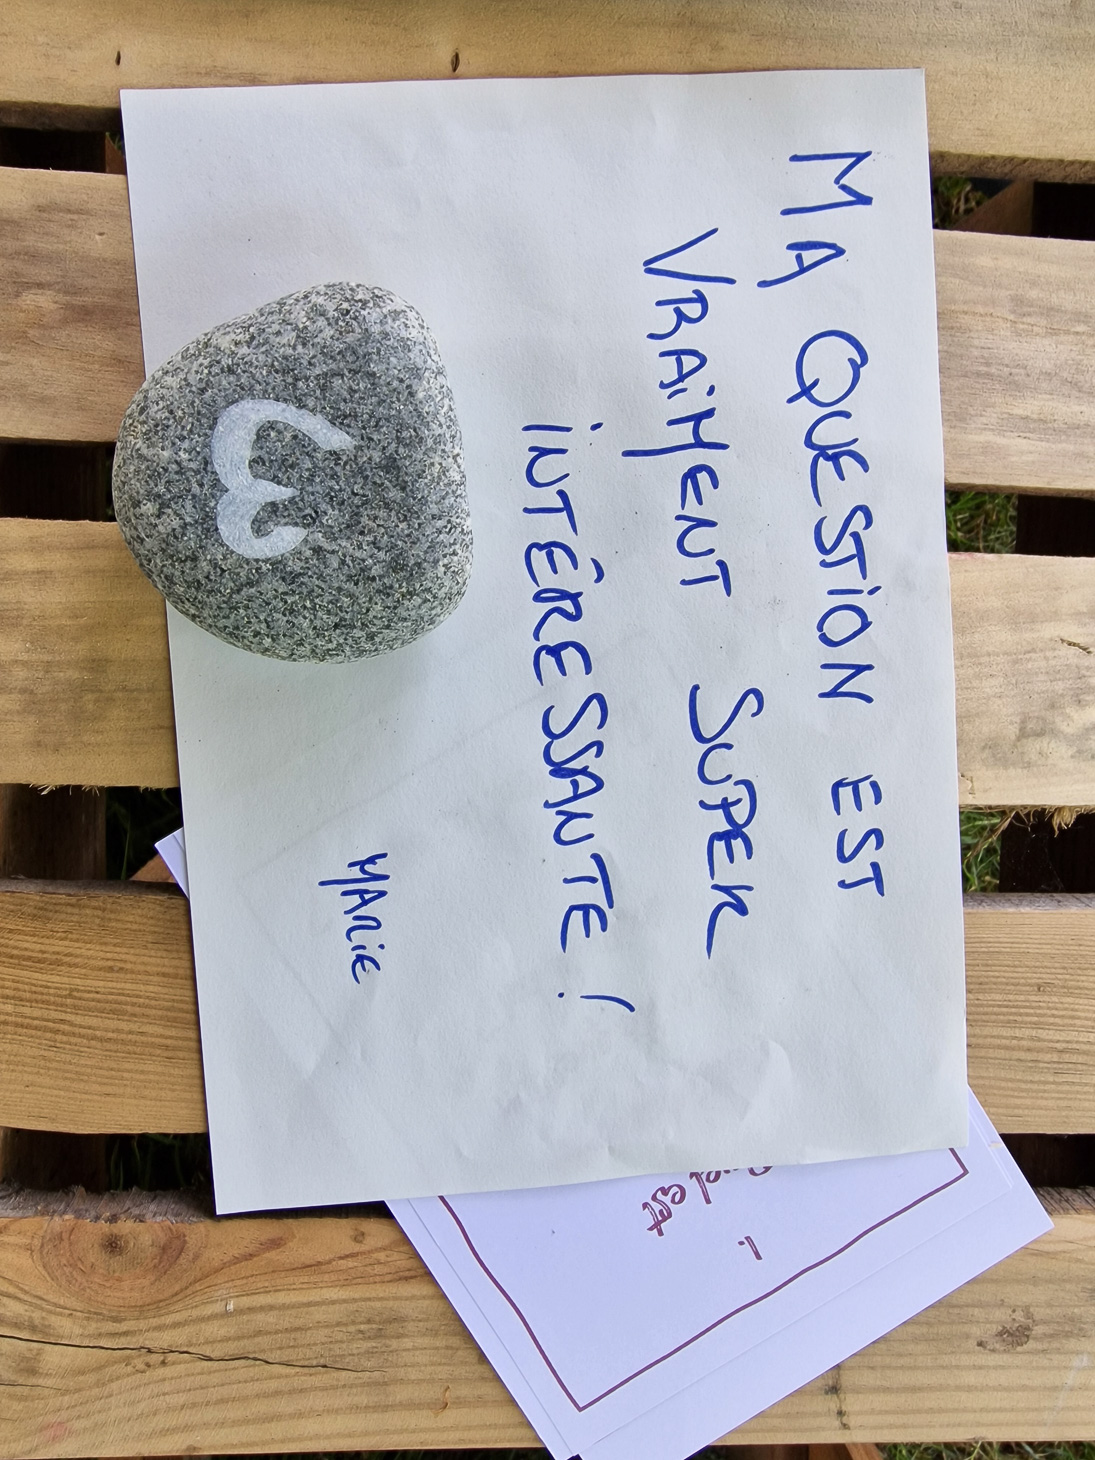 MA QUESTiON EST
VRAiMENT SUPER
iNTÉRESSANTE !
MARiE
est